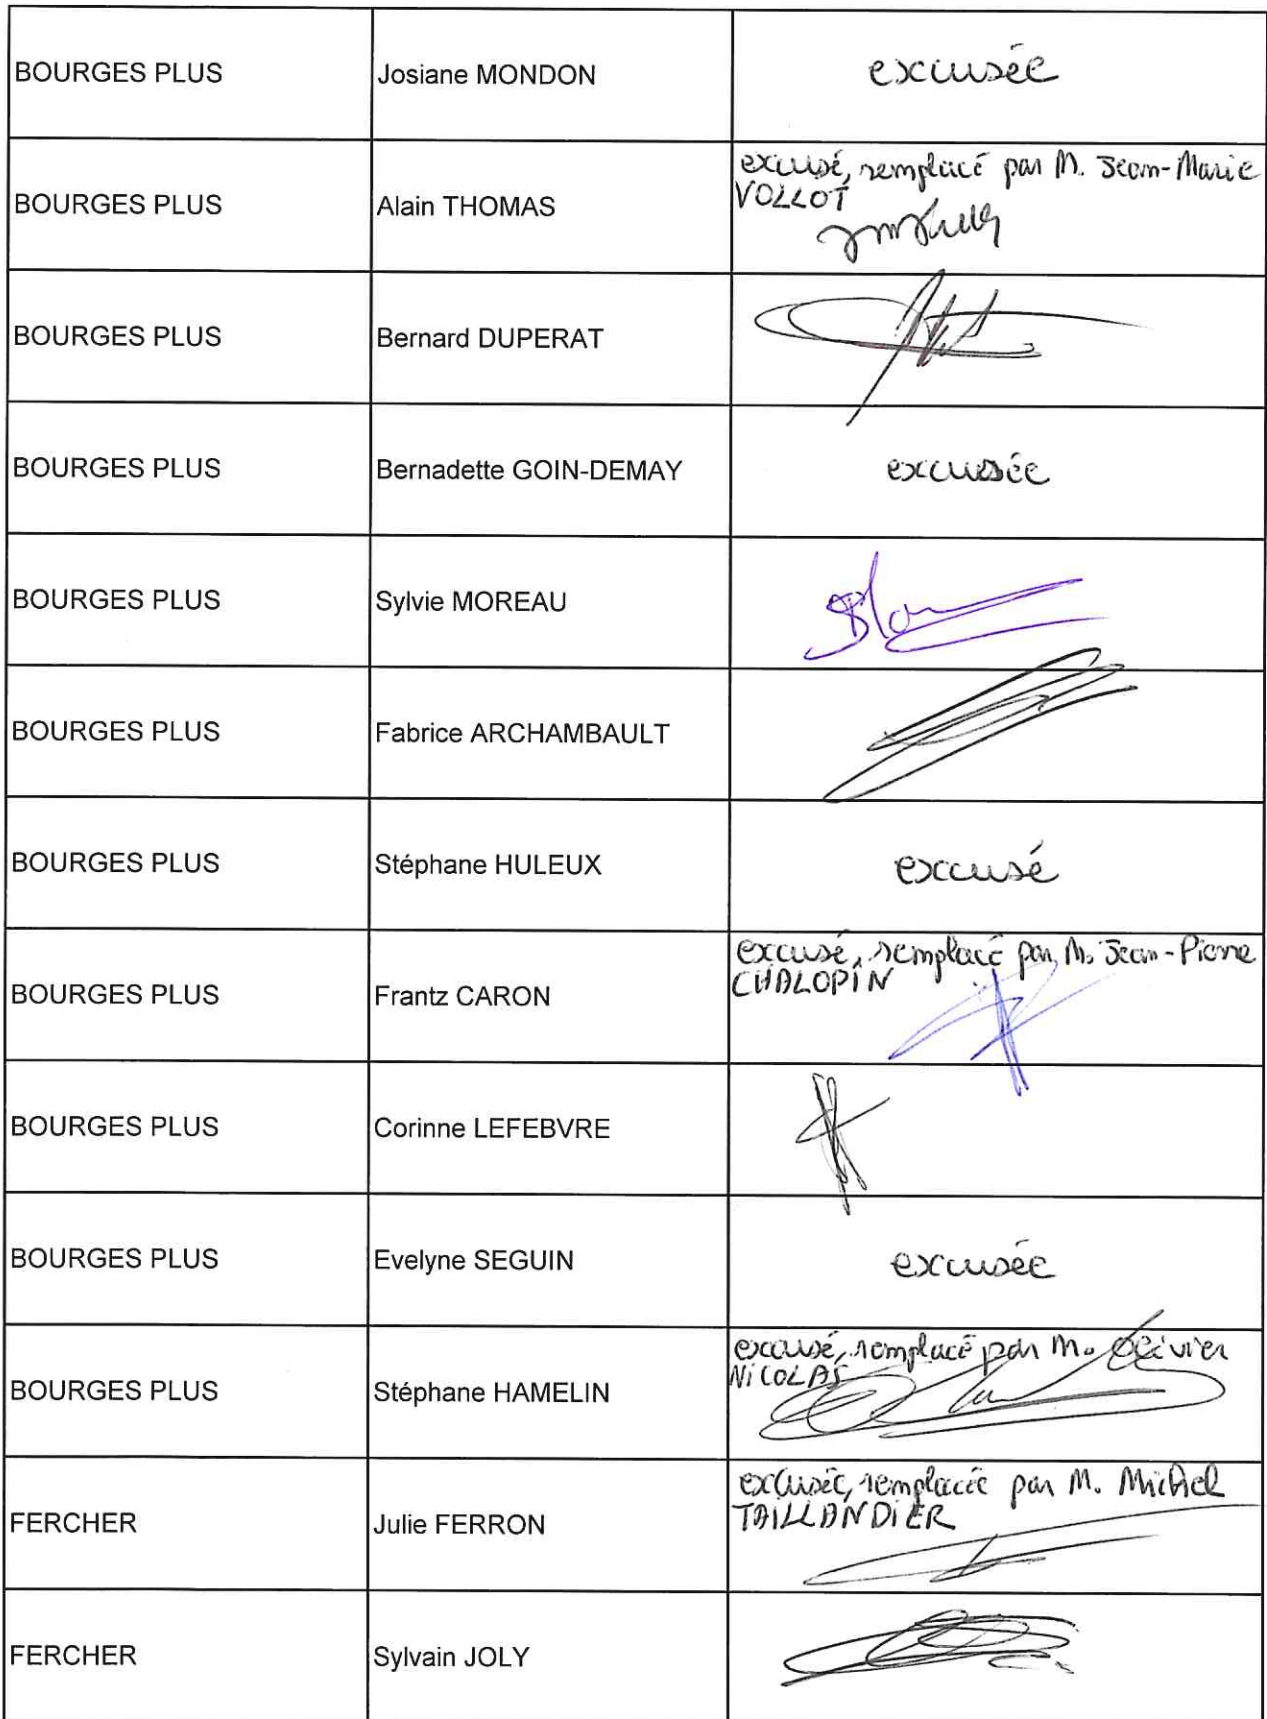 BOURGES PLUS Josiane MONDON excusée
BOURGES PLUS Alain THOMAS excusé, remplacé par M. Jean-Marie
VOLLOT
BOURGES PLUS Bernard DUPERAT
BOURGES PLUS Bernadette GOIN-DEMAY excusée
BOURGES PLUS Sylvie MOREAU
BOURGES PLUS Fabrice ARCHAMBAULT
BOURGES PLUS Stéphane HULEUX excusé
BOURGES PLUS Frantz CARON excusé, remplacé par M. Jean-Pierre
CHALOPIN
BOURGES PLUS Corinne LEFEBVRE
BOURGES PLUS Evelyne SEGUIN excusée
BOURGES PLUS Stéphane HAMELIN excusé, remplacé par M. Olivier
NICOLAS
FERCHER Julie FERRON excusée, remplacée par M. Michel
TAILLANDIER
FERCHER Sylvain JOLY